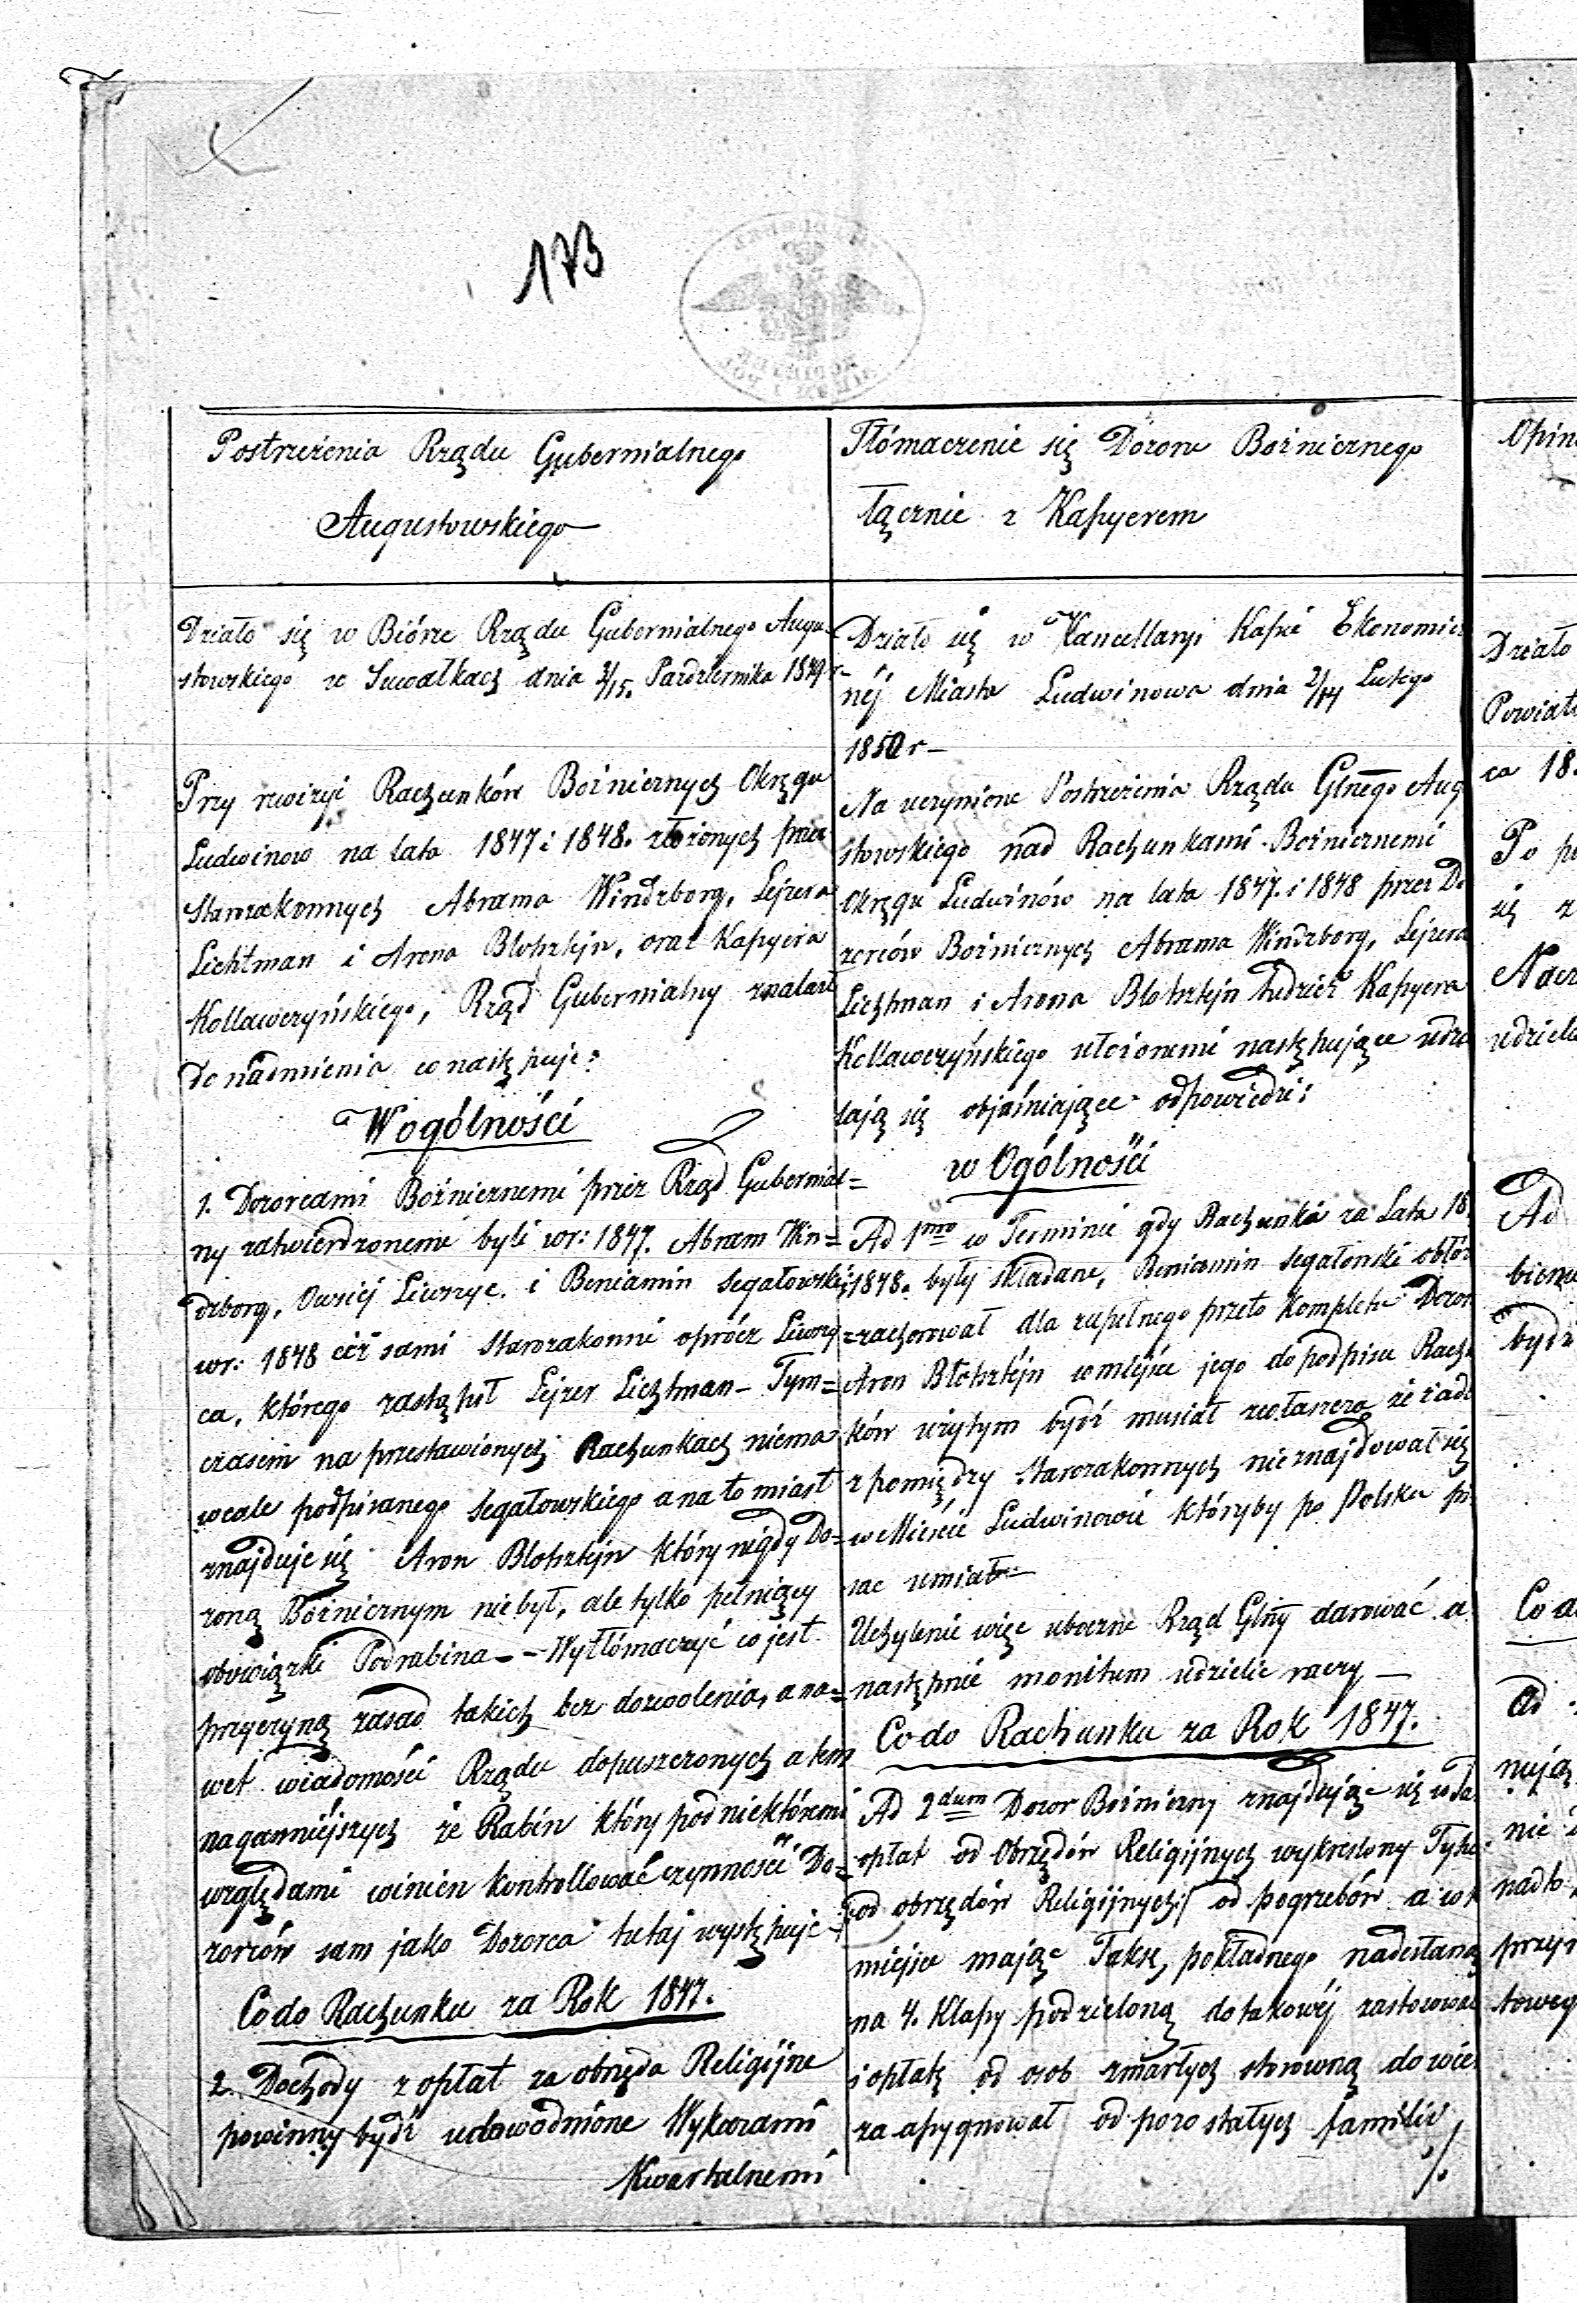 173
Postrzeżenia Rządu Gubernialnego
Augustowskiego
Działo się w Biórze Rządu Gubernialnego Augu-
stowskiego w Suwałkach dnia 3/15. Października 1849 r-
Przy rewizyi Rachunków Bożniczych Okręgu
Ludwinow na lata 1847 i 1848. złożonych przez
Starozakonnych Abrama Windzborg, Lejzera
Lichtman i Arona Blotsztejn, oraz Kassyera
Kollawczyńskiego, Rząd Gubernialny znalazł
do nadmienia co następuje:
W ogólności
1. Dozorcami Bożnicznemi przez Rząd Gubernial=
ny zatwierdzonemi byli w r: 1847. Abram Win=
dzborg, Owsiej Liwszyc. i Beniamin Segałowski;
w r: 1848 ciż sami Starozakonni oprócz Liwszy=
ca, którego zastąpił Lejzer Lichtman - Tym=
czasem na przestawionych Rachunkach niema
wcale podpisanego Segałowskiego a natomiast
znajduje się Aron Blotsztejn który nigdy Do=
zorcą Bożnicznym nie był, ale tylko pełniący
obowiązki Podrabina - - Wytłómaczyć co jest
przyczyną zasad takich bez dozwolenia, a na=
wet wiadomości Rządu dopuszczonych a tem
naganniejszych że Rabin który pod niektóremi
względami winien kontrollować czynności Do=
zorców sam jako Dozorca tutaj występuje -
Co do Rachunku za Rok 1847.
2. Dochody z opłat za obrzęda Religijne
powinny bydź udowodnione Wykazami
Kwartalnemi
Tłómaczenie się Dozoru Bożnicznego
łącznie z Kassyerem
Działo się w Kancellaryi Kassie Ekonomicz
néj Miasta Ludwinowa dnia 2/14 Lutego
1850 r -
Na uczynione Postrzeżenia Rządu Glnego Aug
stowskiego nad Rachunkami Bożniczemi
Okręgu Ludwinów na lata 1847. i 1848 przez Do
zorców Bożnicznych Abrama Windzborg, Lejzera
Lichtman i Arona Blotsztejn tudzież Kassyera
Kollawczyńskiego ułożonemi następujące udzie
lają się objaśniające odpowiedzi:
w Ogólności
Ad 1mo w Terminie gdy Rachunki za Lata 18
1848. były składane, Beniamin Segałowski obłóż
=zachorował dla zupełnego przeto Kompletu Dozor
Aron Błotsztejn w miejsce jego do podpisu Rach
ków użytym bydź musiał zwłaszcza że żad
z pomiędzy Starozakonnych nie znajdował się
w Mieście Ludwinowie któryby po Polsku pi
sac umiał -
Uchylenie więc uboczne Rząd Glny darować a
następnie monitum udzielic raczy -
Co do Rachunku za Rok 1847.
Ad 2dum Dozor Bożniczny znajdując się w Ta
opłat od Obrzędów Religijnych wykreslony Tytuł
od obrzędów Religijnych/ od pogrzebów a w t
miejsce mając Taksę, pokładnego nadesłaną
na 4. Klassy podzieloną do takowéj zastosował
i opłatę od osob zmarłych stosowną do wie
za assygnował od pozostałych familii
./.
Opin
Działo
Powiatu
ca 18.
Po p
się z
Nacz
udziela
Ad
bienia
bydź
Co d
ad
nują
nie
nadto
przyj
towego